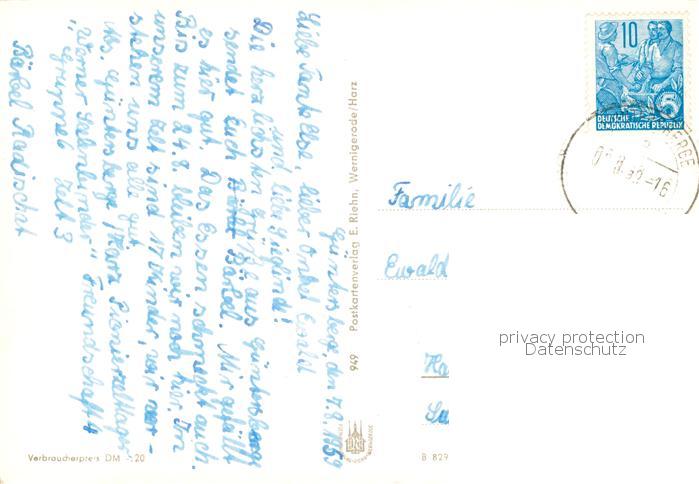 Güntersberge, den 7.8.1959
Liebe Tante Else, lieber Onkel Ewald
und liebe Sieglinde!
Die herzlichsten Grüße aus Güntersberge
sendet Euch Bärbel. Mir gefällt
es hier gut. Das Essen schmeckt auch.
Bis zum 24.8. bleiben wir noch hier. In
unserem Zelt sind 17 Kinder, wir ver-
stehen uns alle gut.
Güntersberge /Harz Pionierzeltlager
"Werner Seelenbinder" Freundschaft 4
Gruppe 2 Zelt 3
Bärbel
949 Postkartenverlag E. Riehn, Wernigerode/Harz
Verbraucherpreis DM -.20
10
5
DEUTSCHE
DEMOKRATISCHE REPUBLIK
Familie
Ewald
Ha
privacy protection
Datenschutz
B 829